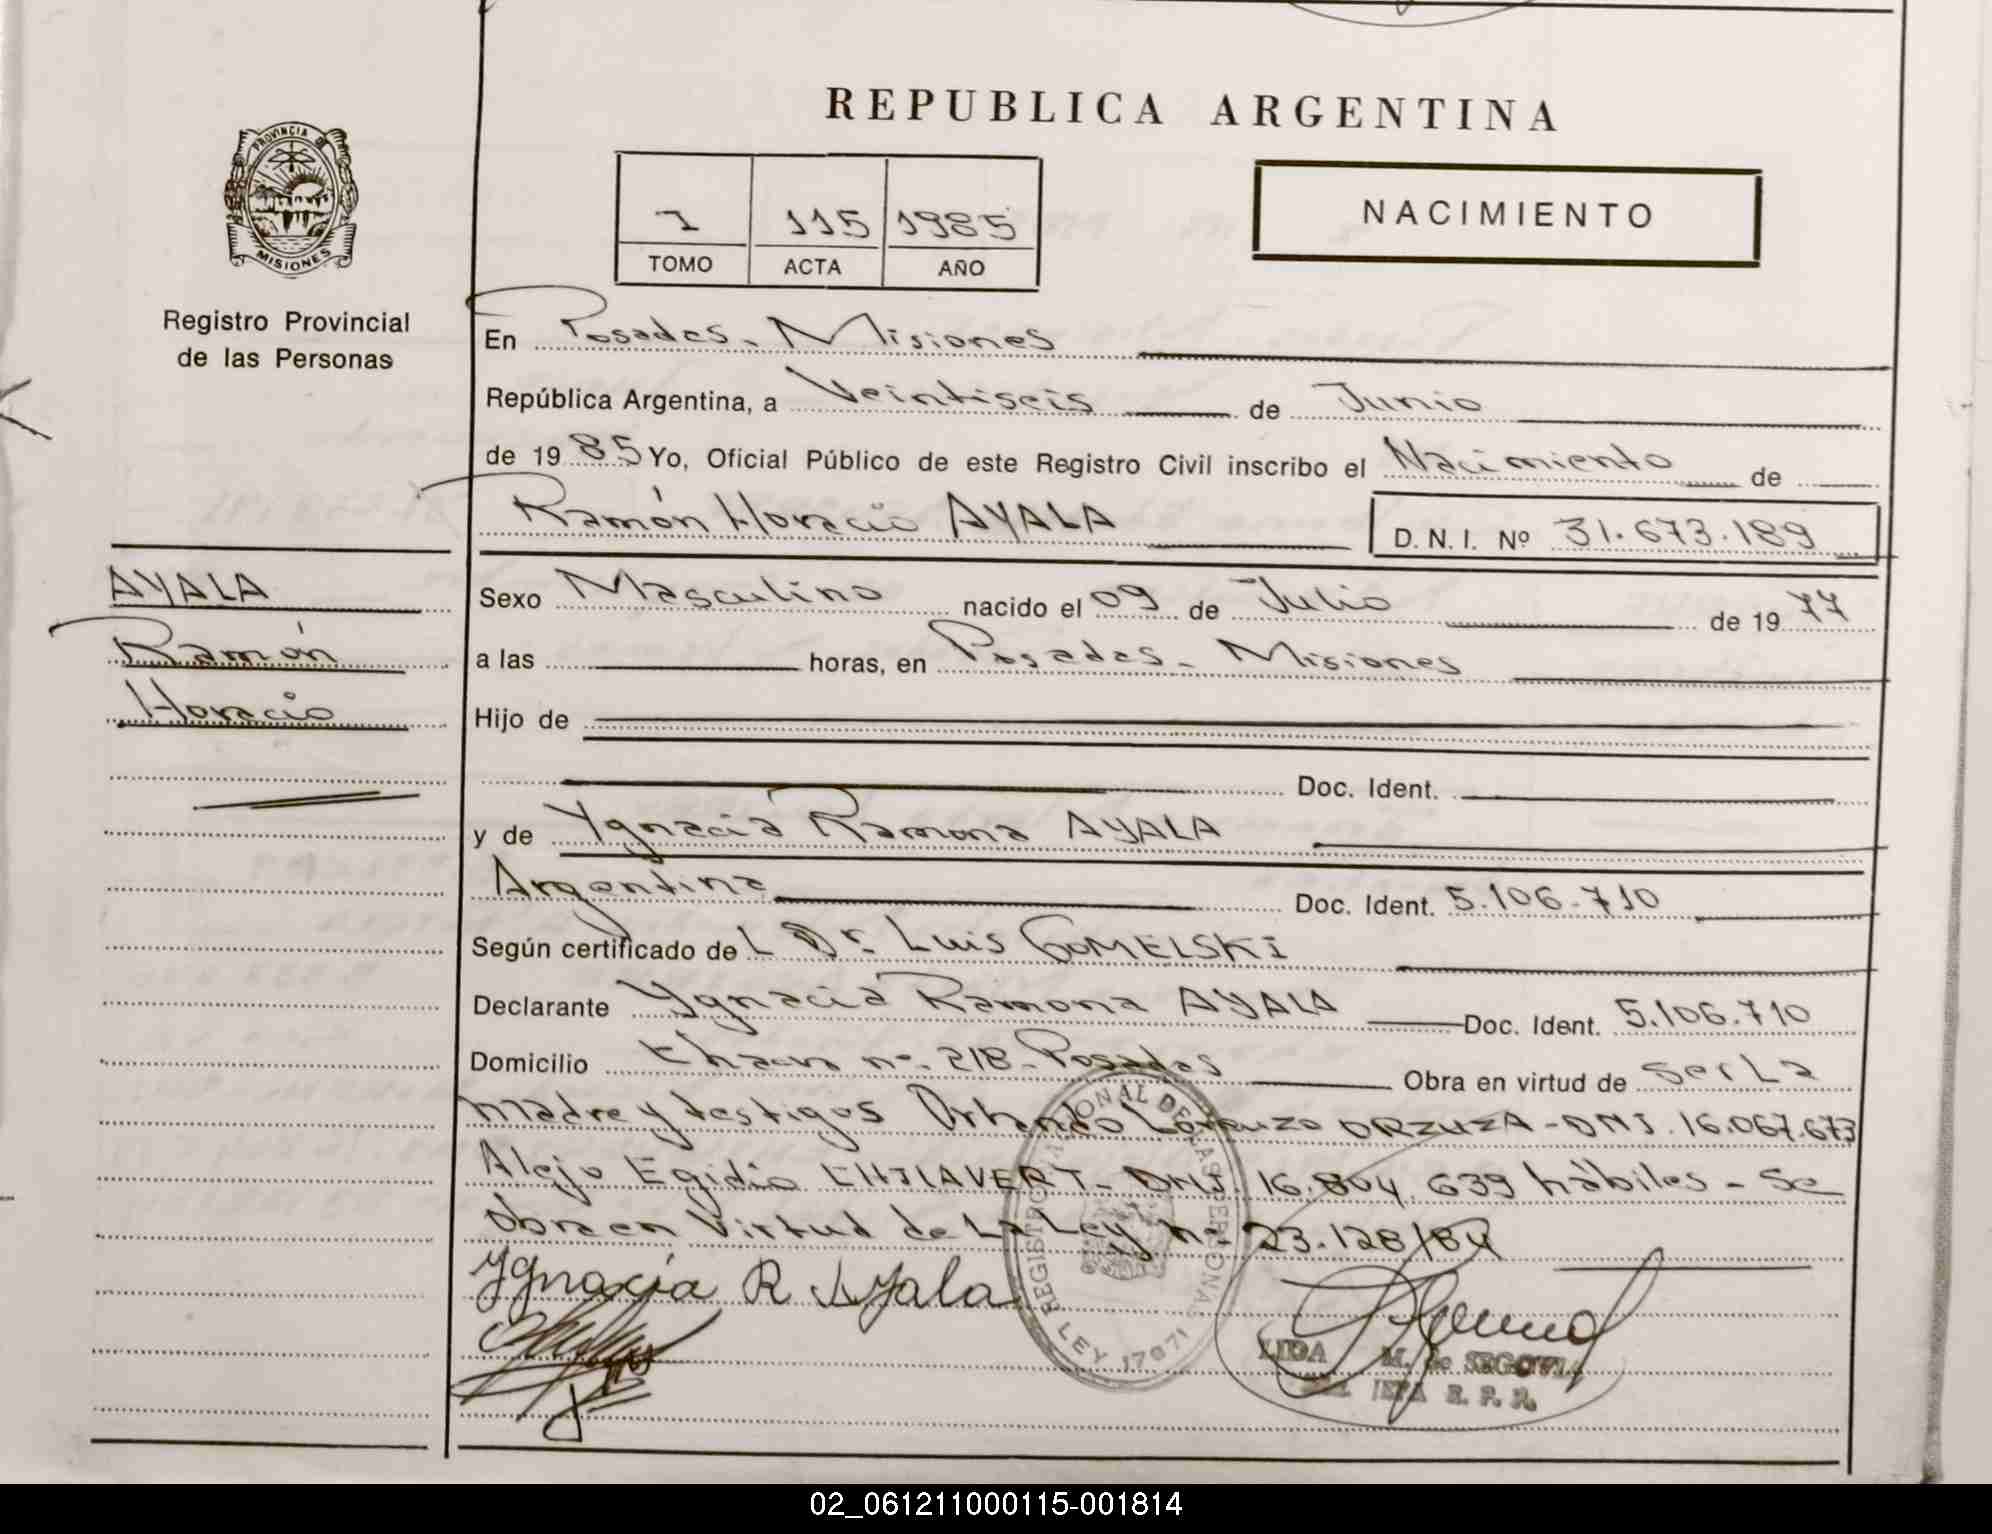 REPUBLICA ARGENTINA
PROVINCIA DE MISIONES
Registro Provincial
de las Personas
I 115 1985
TOMO ACTA AÑO
NACIMIENTO
En Posadas - Misiones
República Argentina, a Veintiseis de Junio
de 1985 Yo, Oficial Público de este Registro Civil inscribo el Nacimiento de
Ramón Horacio AYALA D.N.I. Nº 31.673.189
AYALA
Ramón
Horacio
Sexo Masculino nacido el 09 de Julio de 1977
a las horas, en Posadas - Misiones
Hijo de
Doc. Ident.
y de Ygnacia Ramona AYALA
Argentina Doc. Ident. 5.106.710
Según certificado de L Dr. Luis GOMELSKI
Declarante Ygnacia Ramona AYALA Doc. Ident. 5.106.710
Domicilio nº 218 - Posadas Obra en virtud de ser La
madre y testigos Orlando Lorenzo ORZUZA - DNI. 16.067.673
Alejo Egidio CHILAVERT - DNI. 16.804.639 hábiles - Se
Obra en Virtud de La Ley nº 23.128/84
Ygnacia R Ayala
REGISTRO NACIONAL DE LAS PERSONAS
LEY 17671
LIDA M. de SEGOVIA
R. P. P.
02_061211000115-001814